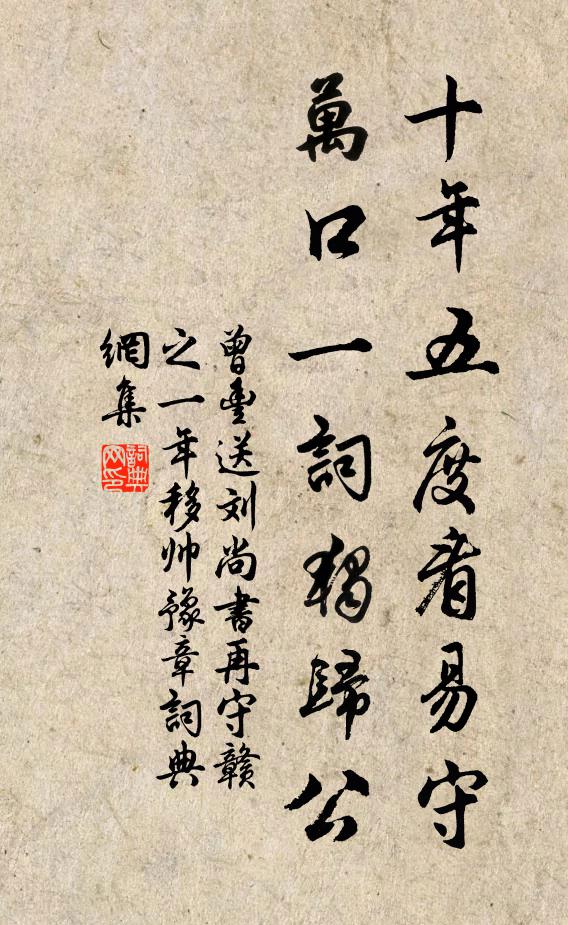 十年五度看易守
萬口一詞獨歸公
曾豊送刘尚書再守贛
之一年移帅豫章詞典
網集
詞典
网印